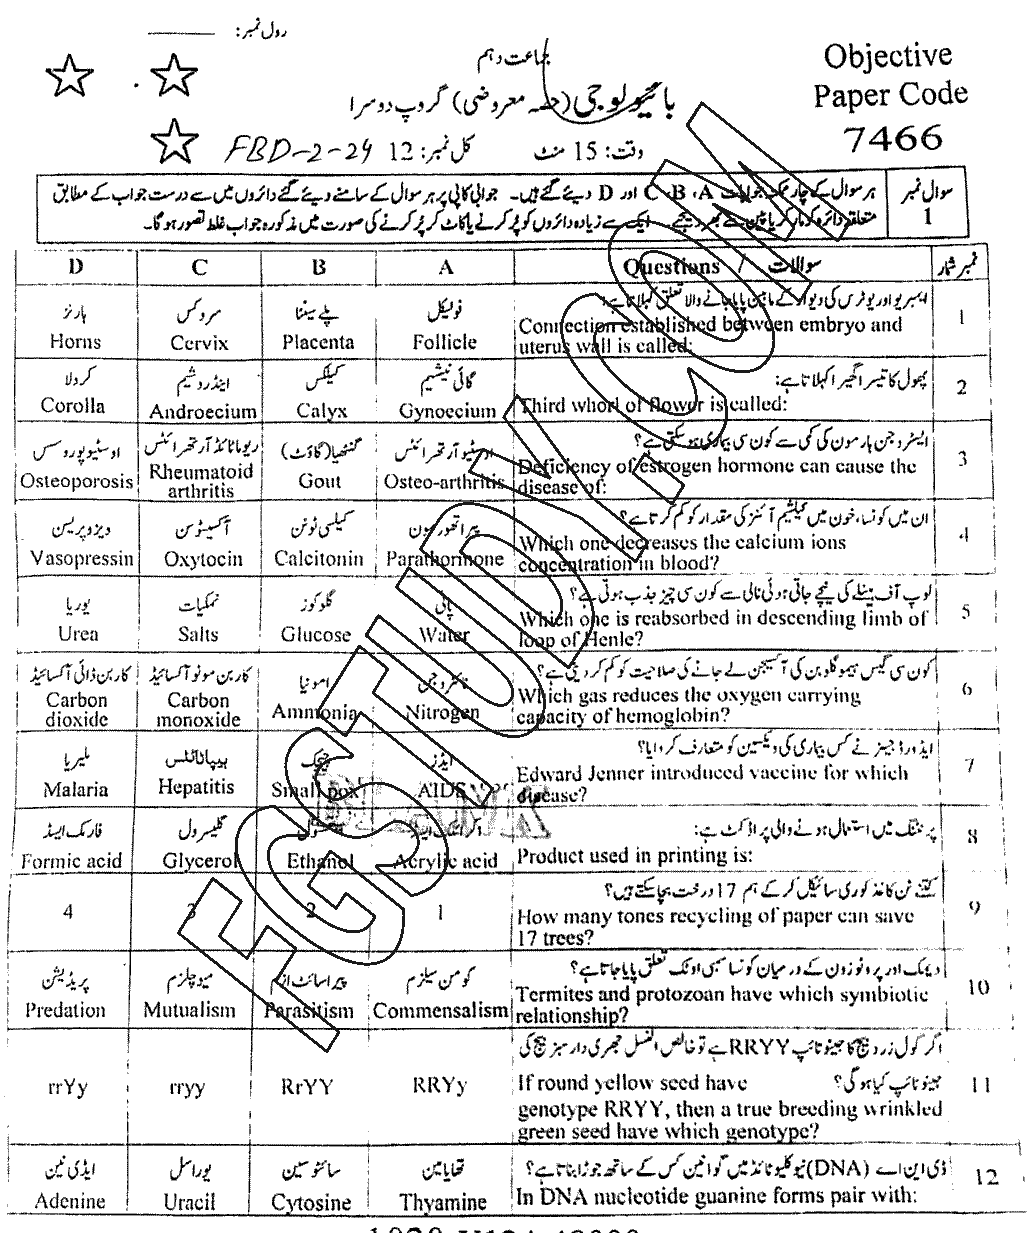 رول نمبر: ______
جماعت دہم
Objective
Paper Code
7466
بائیولوجی (حصہ معروضی) گروپ دوسرا
وقت: 15 منٹ کل نمبر: 12 FBD-2-24
سوال نمبر 1
ہر سوال کے چار ممکنہ جوابات A، B، C اور D دیئے گئے ہیں۔ جوابی کاپی پر ہر سوال کے سامنے دیئے گئے دائروں میں سے درست جواب کے مطابق
متعلقہ دائرہ کو مارکر یا پین سے بھر دیجئے۔ ایک سے زیادہ دائروں کو پُر کرنے یا کاٹ کر پُر کرنے کی صورت میں مذکورہ جواب غلط تصور ہوگا۔
نمبر شمار سوالات / Questions A B C D
1 ایمبریو اور یوٹرس کی دیوار کے مابین پایا جانے والا تعلق کہلاتا ہے:
Connection established between embryo and
uterus wall is called:
فولیکل پلے سینٹا سروکس ہارنز
Follicle Placenta Cervix Horns
2 پھول کا تیسرا گھیرا کہلاتا ہے:
Third whorl of flower is called:
گائی نیشیم کیلکس اینڈروشیم کرولا
Gynoecium Calyx Androecium Corolla
3 ایسٹروجن ہارمون کی کمی سے کون سی بیماری ہوسکتی ہے؟
Deficiency of estrogen hormone can cause the
disease of:
اوسٹیو آرتھرائٹس گنٹھیا (گاؤٹ) ریوماٹائڈ آرتھرائٹس اوسٹیوپوروسس
Osteo-arthritis Gout Rheumatoid arthritis Osteoporosis
4 ان میں کونسا، خون میں کیلشیم آئنز کی مقدار کو کم کرتا ہے؟
Which one decreases the calcium ions
concentration in blood?
پیراتھورمون کیلسی ٹونن آکسیٹوسن ویزوپریسن
Parathormone Calcitonin Oxytocin Vasopressin
5 لوپ آف ہینلے کی نیچے جاتی ہوئی نالی سے کون سی چیز جذب ہوتی ہے؟
Which one is reabsorbed in descending limb of
loop of Henle?
پانی گلوکوز نمکیات یوریا
Water Glucose Salts Urea
6 کون سی گیس ہیموگلوبن کی آکسیجن لے جانے کی صلاحیت کو کم کر دیتی ہے؟
Which gas reduces the oxygen carrying
capacity of hemoglobin?
نائٹروجن امونیا کاربن مونو آکسائیڈ کاربن ڈائی آکسائیڈ
Nitrogen Ammonia Carbon monoxide Carbon dioxide
7 ایڈورڈ جینر نے کس بیماری کی ویکسین کو متعارف کروایا؟
Edward Jenner introduced vaccine for which
disease?
ایڈز چیچک ہیپاٹائٹس ملیریا
AIDS Small pox Hepatitis Malaria
8 پرنٹنگ میں استعمال ہونے والی پراڈکٹ ہے:
Product used in printing is:
اکرائلک ایسڈ ایتھنول گلیسرول فارمک ایسڈ
Acrylic acid Ethanol Glycerol Formic acid
9 کتنے ٹن کاغذ کو ری سائیکل کر کے ہم 17 درخت بچا سکتے ہیں؟
How many tones recycling of paper can save
17 trees?
1 2 3 4
10 دیمک اور پروٹوزون کے درمیان کونسا سمبی اوٹک تعلق پایا جاتا ہے؟
Termites and protozoan have which symbiotic
relationship?
کومن سیلزم پیراسائٹ ازم میوچلزم پریڈیشن
Commensalism Parasitism Mutualism Predation
11 اگر گول زرد بیج کا جینوٹائپ RRYY ہے تو خالص النسل جھری دار سبز بیج کی
جینوٹائپ کیا ہوگی؟ If round yellow seed have
genotype RRYY, then a true breeding wrinkled
green seed have which genotype?
RRYy RrYY rryy rrYy
12 ڈی این اے (DNA) نیوکلیوٹائڈ میں گوانین کس کے ساتھ جوڑا بناتا ہے؟
In DNA nucleotide guanine forms pair with:
تھایامین سائٹوسین یوراسل ایڈی نین
Thyamine Cytosine Uracil Adenine
FGSTUDY.COM